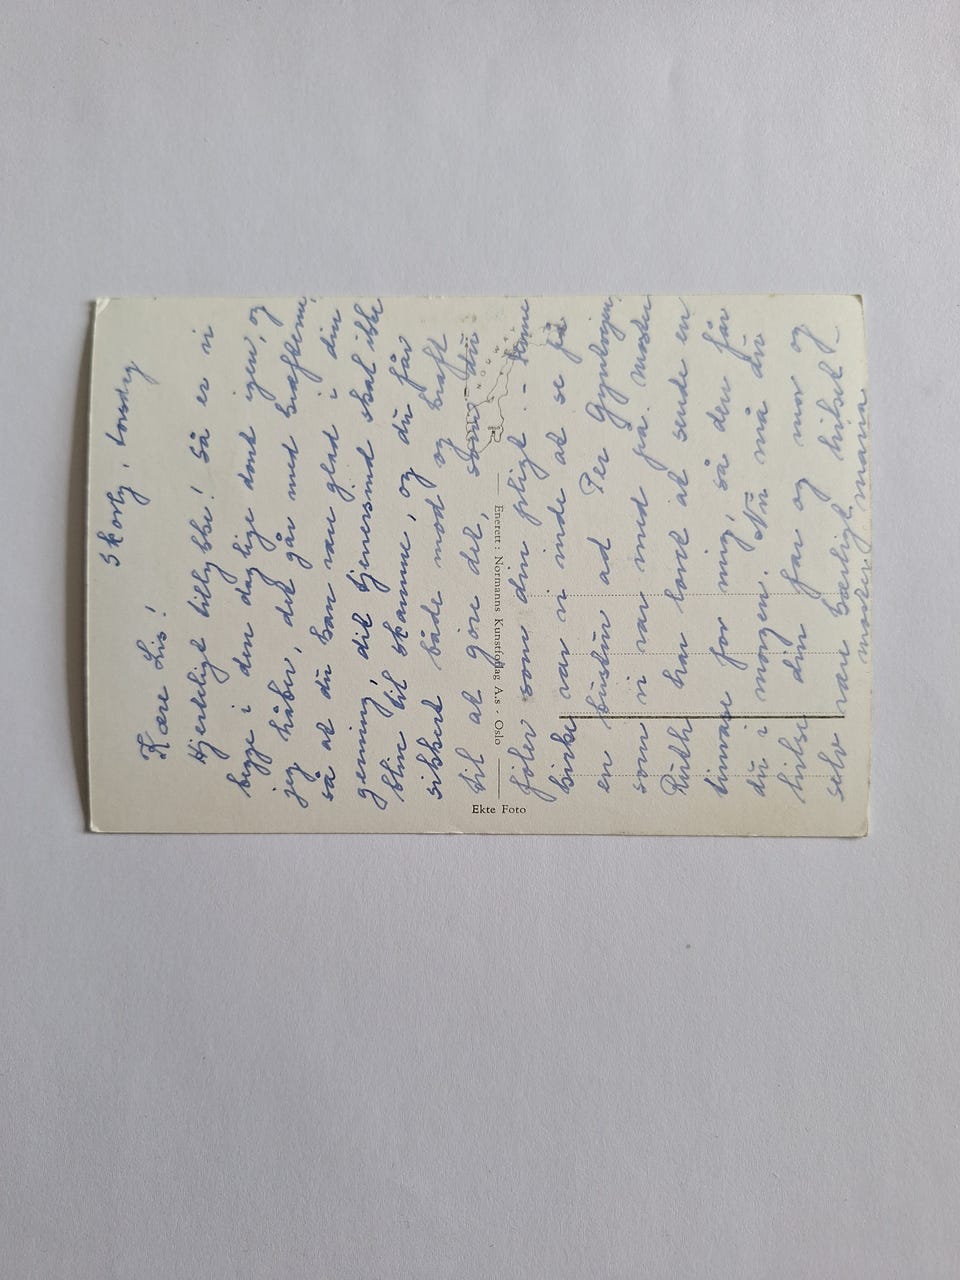 Skovby, torsdag
Kære Lis!
Hjerteligt tillykke! Så er vi
begge i den daglige dont igen, og
jeg håber, det går med kræfterne,
så at du kan være glad i din
gerning, dit hjemersind skal ikke
blive til skamme, og du får
sikkert både mod og kraft
til at gøre det, som du
føler som din pligt. -
kirke var vi inde at se på
en bustur ad Per Gyntvejen,
som vi var med på. Moster
Ruth har lovet at sende en
timase for mig, så den får
du i morgen. Nu må du
hilse din far og mor og
selv være kærligt hilset f.
moster maria
NORGE
Enerett: Normanns Kunstforlag A.s - Oslo
Ekte Foto